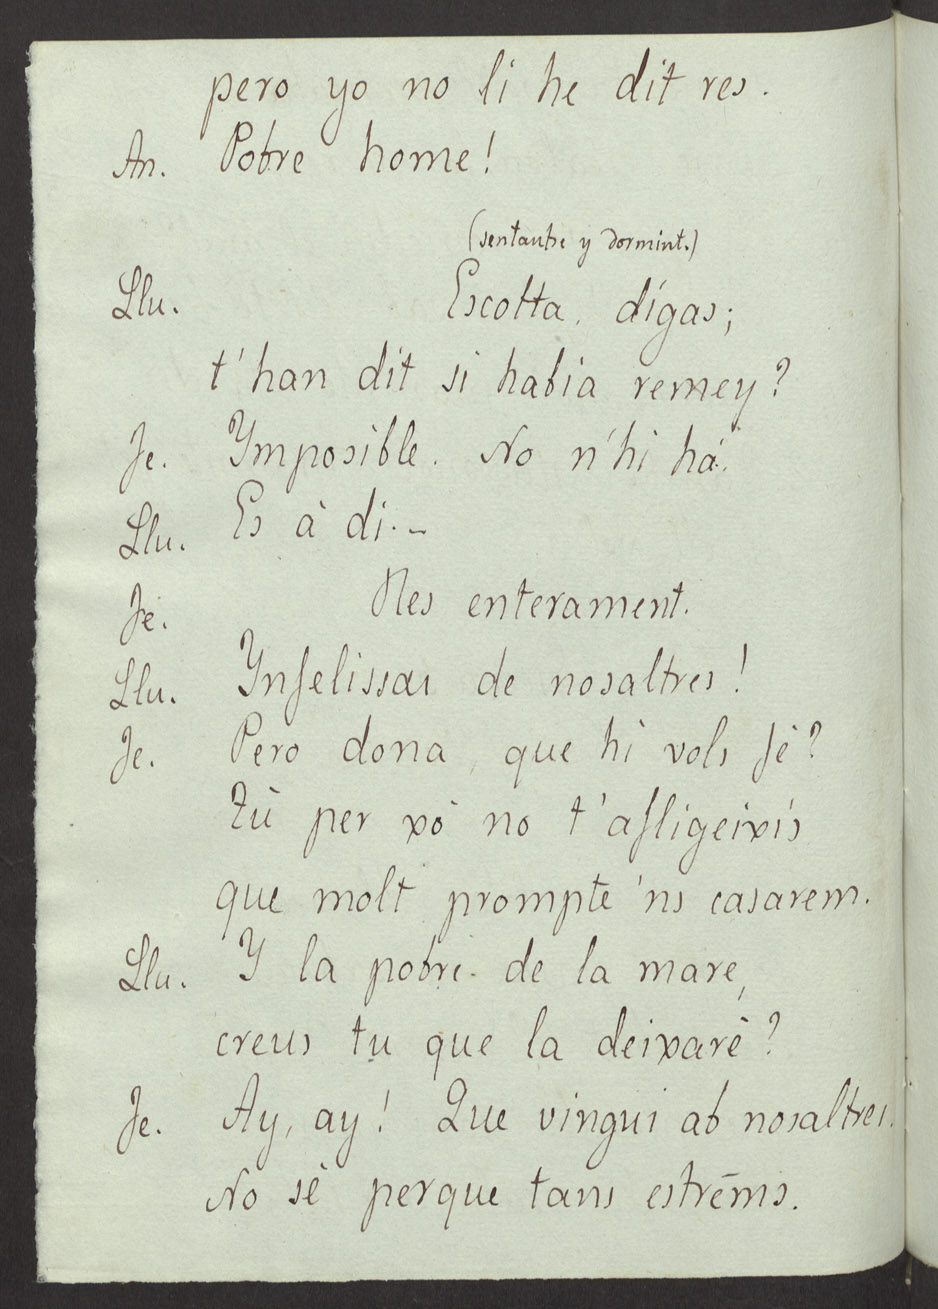 pero yo no li he dit res.
An. Pobre home!
(sentantse y dormint.)
Llu. Escolta, dígas;
t'han dit si habia remey?
Je. Ymposible. No n'hi há.
Llu. Es á di..-
Je. Res enterament.
Llu. Ynfelissas de nosaltres!
Je. Pero dona, que hi vols fé?
tù per xó no t'afligeixis
que molt prompte 'ns casarem.
Llu. Y la pobre de la mare,
creus tu que la deixaré?
Je. Ay, ay! Que vingui ab nosaltres.
No sé perque tans estréms.